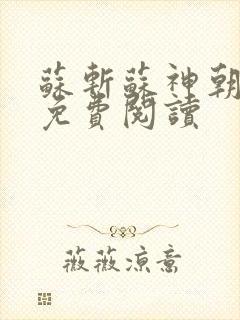 蘇斬蘇神朝
免費閱讀
薇薇凉意